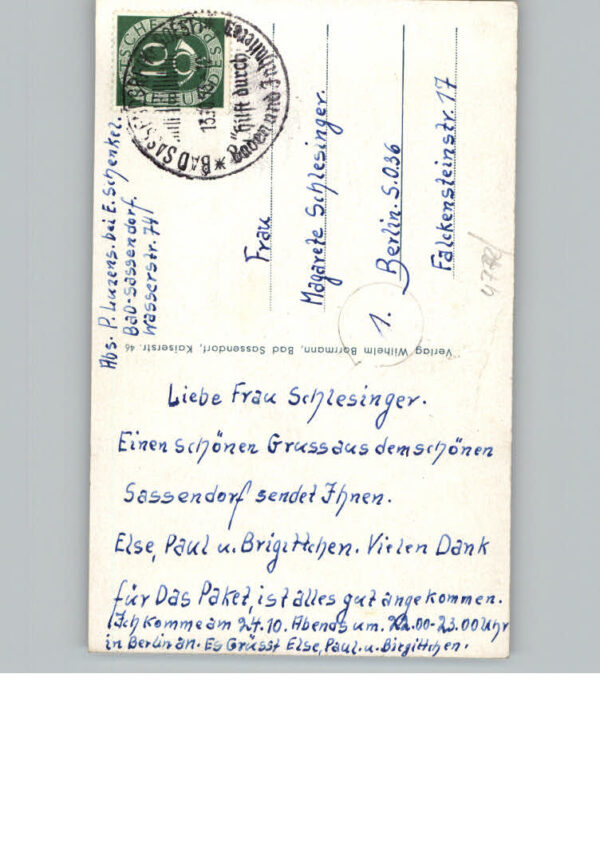 DEUTSCHE
10
BAD SASSENDORF
hilft durch
Baden und Inhalieren
Abs. P. bei E. Schenkel.
Bad-Sassendorf.
Wasserstr. 74
Frau
Magarete Schlesinger.
1. Berlin. S.O36
Falckensteinstr. 17
Verlag Wilhelm Borrmann, Bad Sassendorf, Kaiserstr. 46
Liebe Frau Schlesinger.
Einen schönen Gruss aus dem schönen
Sassendorf sendet Ihnen.
Else, Paul u. Brigittchen. Vielen Dank
für Das Paket, ist alles gut angekommen.
Ich komme am 24.10. Abends um. 22.00-23.00 Uhr
in Berlin an. Es Grüsst Else, Paul. u. Birgittchen.